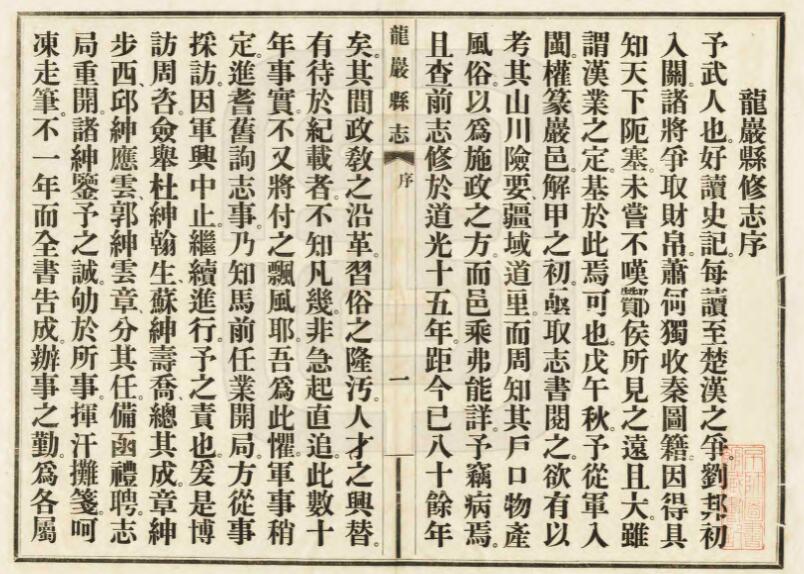 龍巖縣修志序
予武人也。好讀史記。每讀至楚漢之爭。劉邦初
入關。諸將爭取財帛。蕭何獨收秦圖籍。因得具
知天下阨塞。未嘗不嘆酇侯所見之遠且大。雖
謂漢業之定。基於此焉可也。戊午秋。予從軍入
閩。權篆巖邑。解甲之初。亟取志書閱之。欲有以
考其山川險要、疆域道里。而周知其戶口物產
風俗。以爲施政之方。而邑乘弗能詳。予竊病焉。
且查前志修於道光十五年。距今已八十餘年
龍巖縣志
序
一
矣。其間政敎之沿革。習俗之隆汚。人才之興替。
有待於紀載者。不知凡幾。非急起直追。此數十
年事實。不又將付之飄風耶。吾爲此懼。軍事稍
定。進耆舊詢志事。乃知馬前任業開局。方從事
採訪。因軍興中止。繼續進行。予之責也。爰是博
訪周咨。僉舉杜紳翰生、蘇紳壽喬、總其成。章紳
步西、邱紳應雲、郭紳雲章、分其任。備函禮聘。志
局重開。諸紳鑒予之誠。劬於所事。揮汗攤箋。呵
凍走筆。不一年而全書告成。辦事之勤。爲各屬